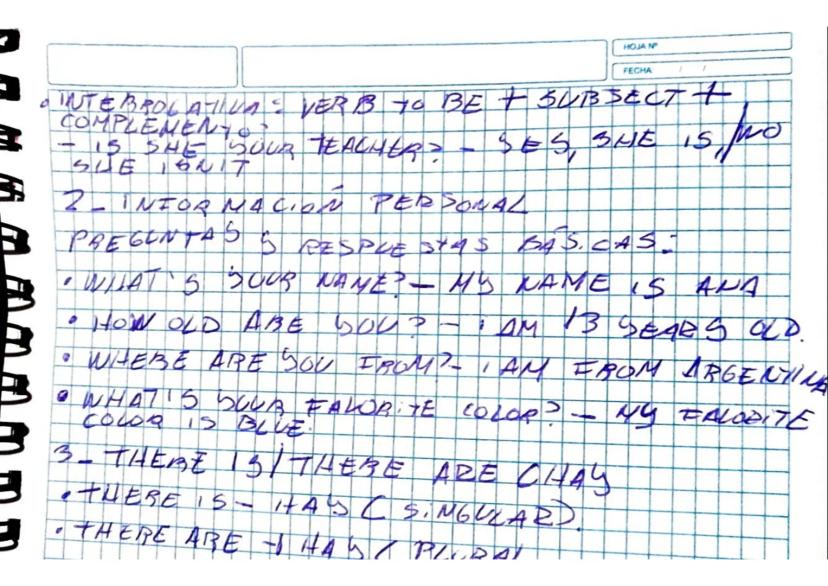 HOJA Nº
FECHA / /
• INTERROGATIVA: VERB TO BE + SUBJECT +
COMPLEMENTO:
- IS SHE YOUR TEACHER? - YES, SHE IS, / NO
SHE ISN'T
2- INFORMACIÓN PERSONAL
PREGUNTAS Y RESPUESTAS BÁSICAS:
• WHAT'S YOUR NAME? - MY NAME IS ANA
• HOW OLD ARE YOU? - I AM 13 YEARS OLD.
• WHERE ARE YOU FROM? - I AM FROM ARGENTINA
• WHAT'S YOUR FAVORITE COLOR? - MY FAVORITE
COLOR IS BLUE.
3- THERE IS / THERE ARE (HAY
• THERE IS - HAY (SINGULAR).
• THERE ARE → HAY (PLURAL